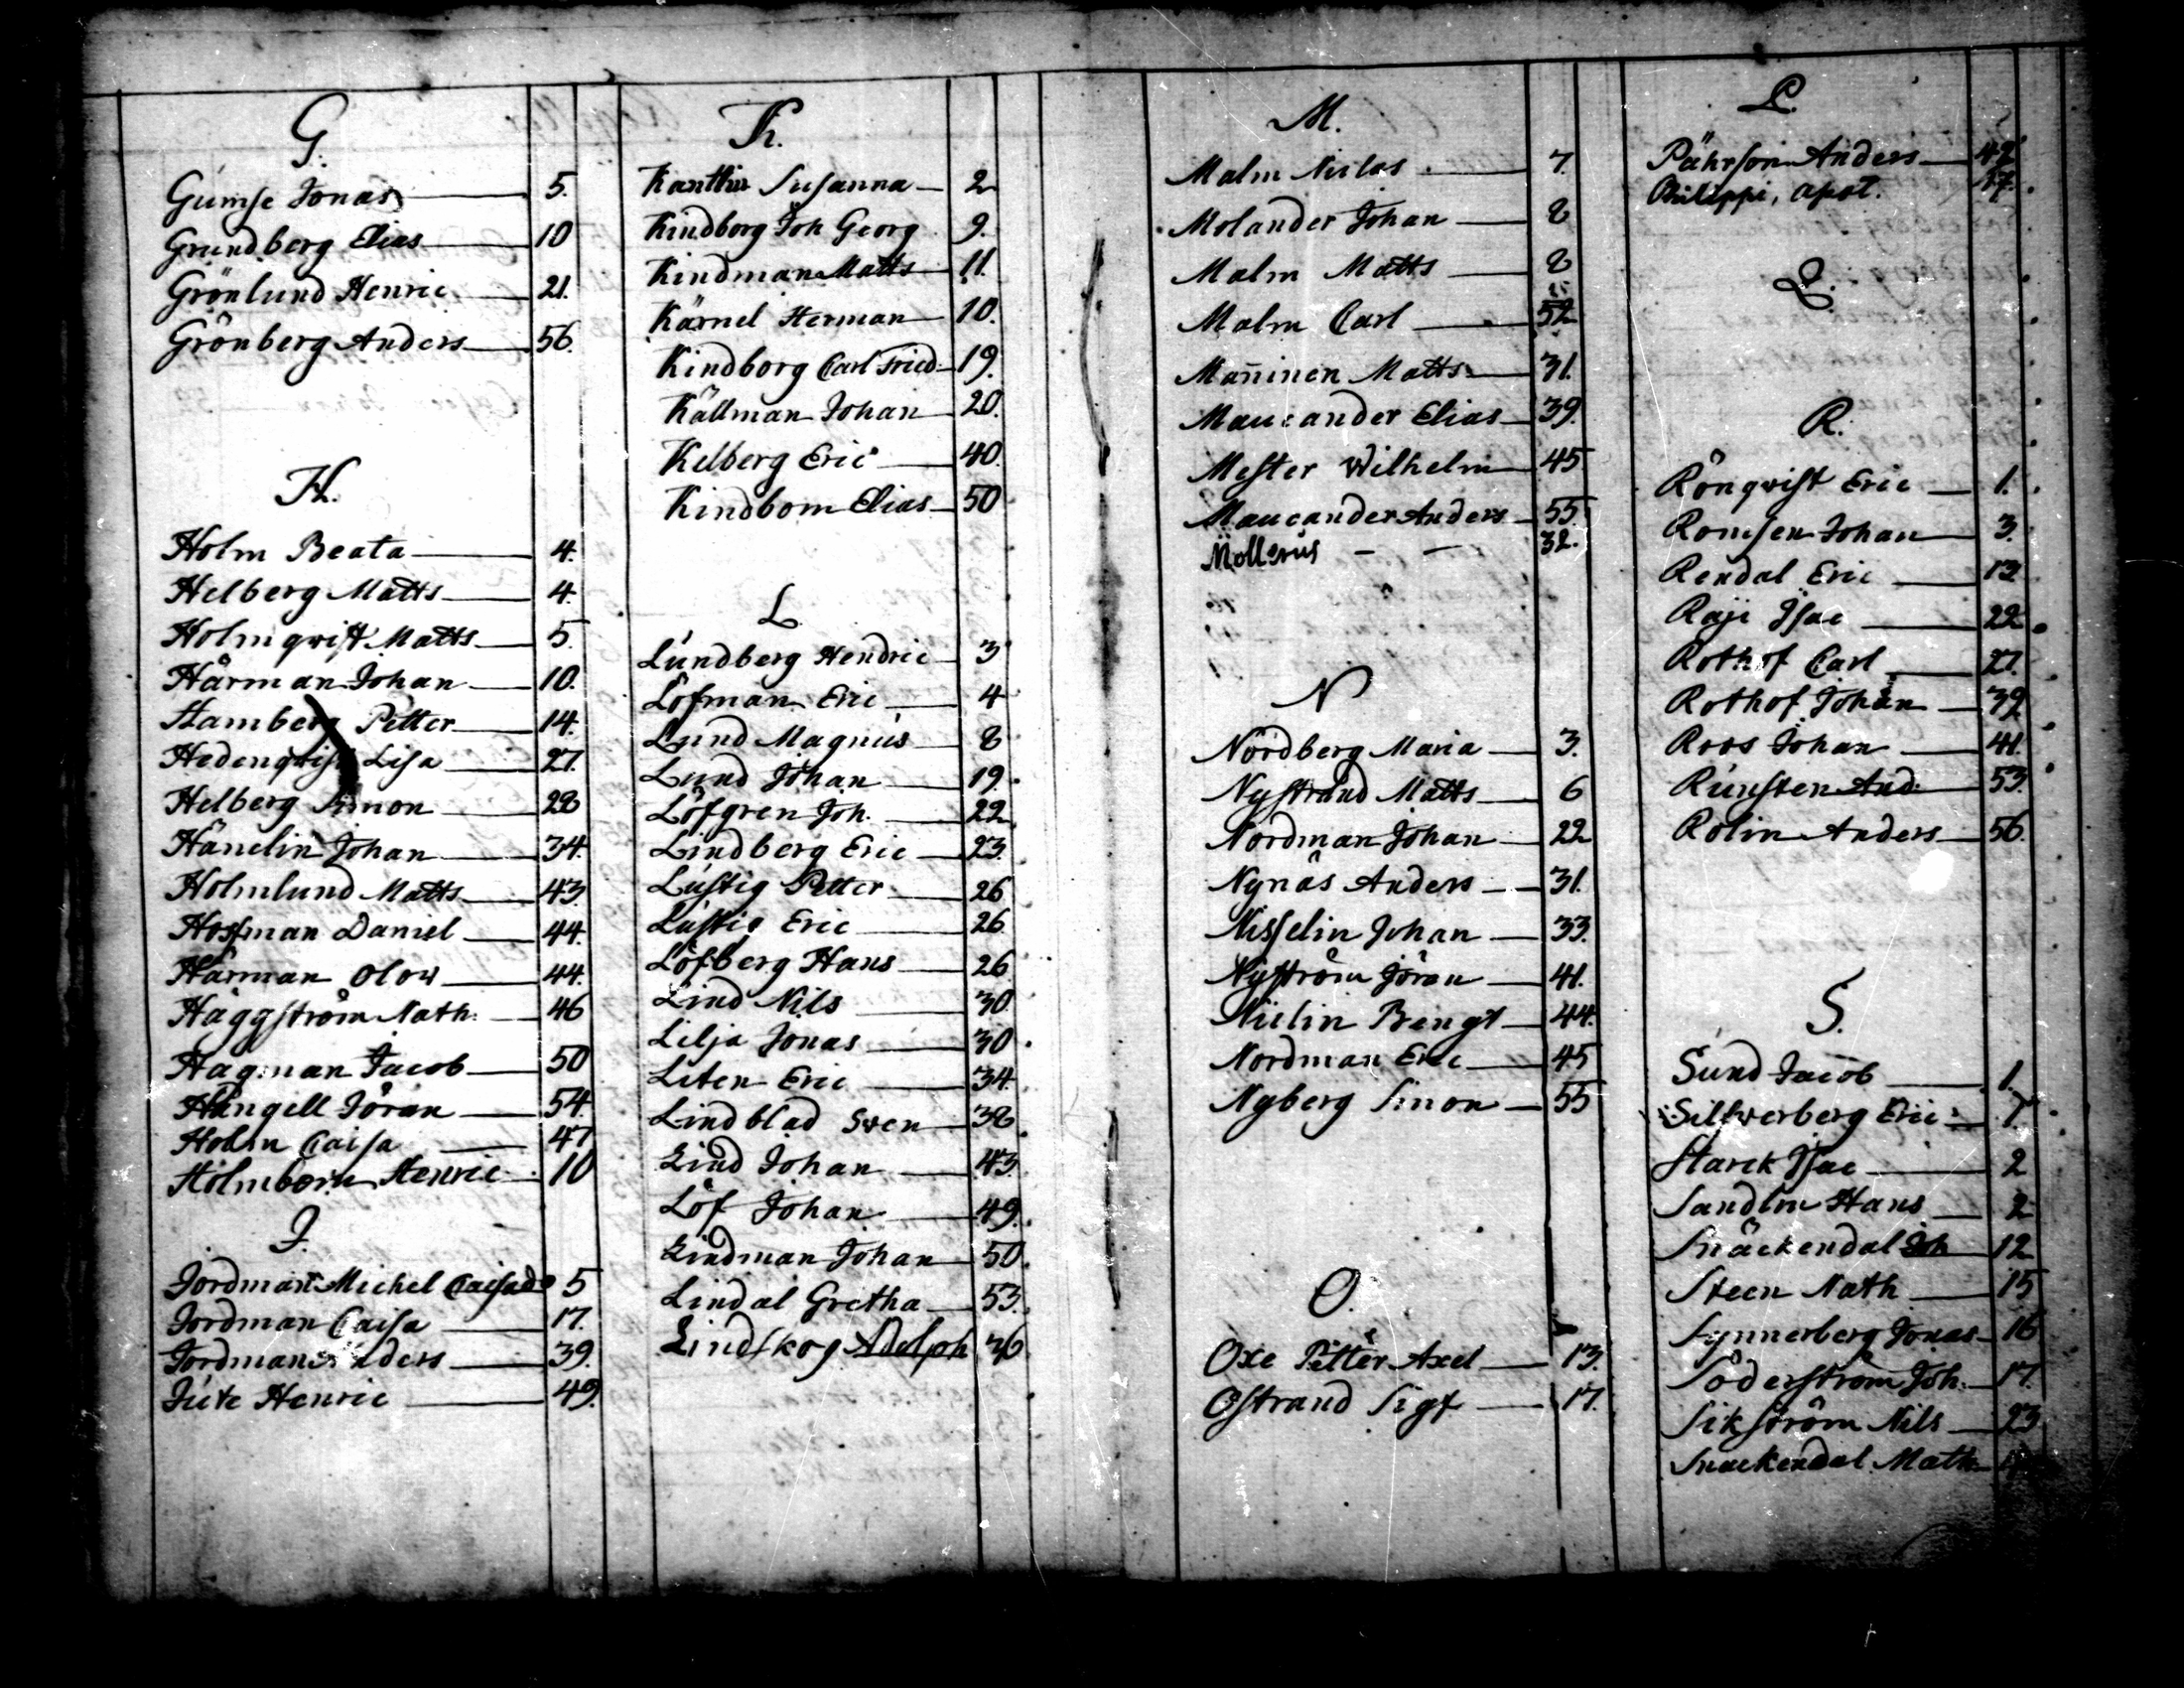 G.
Gumse Jonas 5.
Grundberg Elias 10
Grönlund Henric 21.
Grönberg Anders 56.
H.
Holm Beata 4.
Helberg Matts 4.
Holmqwist Matts 5.
Härman Johan 10.
Hamberg Petter 14.
Hedenqwist Lisa 27.
Helberg Simon 28
Hänelin Johan 34.
Holmlund Matts 43.
Hosman Daniel 44.
Härman Olow 44.
Häggström Nath. 46
Hagman Jacob 50
Hängell Jöran 54.
Holm Caisa 47
Holmbom Henric 10
J.
Jordman Michel Caisa 5
Jordman Caisa 17.
Jordman Anders 39.
Jute Henric 49.
K.
Susanna 2
Kindborg Joh Georg 9.
Kindman Matts 11.
Kärnel Herman 10.
Kindborg Carl Fried: 19.
Källman Johan 20.
Kelberg Eric 40.
Kindbom Elias 50
L
Lundberg Hendric 3
Löfman Eric 4
Lund Magnus 8
Lund Johan 19.
Löfgren Joh. 22
Lindberg Eric 23.
Lustig Petter 26
Lustig Eric 26
Löfberg Hans 26
Lind Nils 30.
Lilja Jonas 30
Liten Eric 34
Lindblad Swen 38
Lind Johan 43.
Löf Johan 49.
Lindman Johan 50.
Lindal Gretha 53.
Lindskog Adolph 36
M.
Malm Niclas 7.
Molander Johan 8
Malm Matts 8
Malm Carl 52
Mañinen Matts 31.
Maucander Elias 39.
Mester Wilhelm 45
Maucander Anders 55.
Mollerus 32.
N
Nordberg Maria 3.
Nystrand Matts 6
Nordman Johan 22
Nynäs Anders 31.
Nisselin Johan 33.
Nyström Jöran 41.
Bengt 44.
Nordman Eric 45
Nyberg Simon 55
O.
Oxe Petter Axel 13.
Ostrand Sigf 17.
P.
Pährson Anders
Philippi, apot.
Q.
R.
Rönqwist Eric 1.
Romsen Johan 3.
Rendal Eric 13
Raji Isac 22
Rothof Carl 27.
Rothof Johan 39
Roos Johan 41.
Runsten And. 53.
Rolin Anders 56.
S.
Sund Jacob 1.
Silfwerberg Eric
Starck Isac 2
Sandlin Hans 2
Snäckendal Joh 12
Steen Nath 15
Synnerberg Jonas 16
Söderström Joh. 17.
Sikström Nils 23
Snäckendal Math